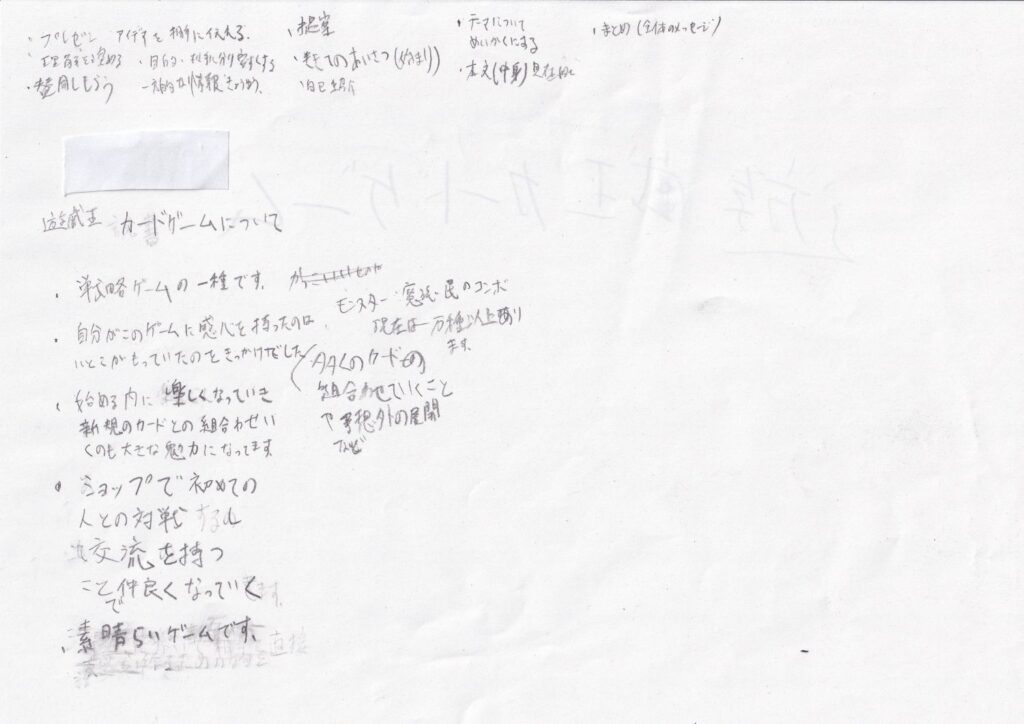 ・プレゼン アイデアを 相手に伝える.
理解を深める ・目的・
・賛同しもらう 一方的な情報
・提案
・もとてのあいさつ(始まり)
・自己紹介
・テーマについて
めいかくにする
・本文(中身)
・まとめ(全体のメッセージ)
遊戯王 カードゲームについて
・戦略ゲームの一種です.
モンスター・ 罠のコンボ
現在は一万種以上あり
ます.
・自分がこのゲームに感心を持ったのは、
いとこがもっていたのをきっかけでした
多くのカードの
組合わせていくこと
や予想外の展開
など
・始める内に 楽しくなっていき
新規のカードとの組合わせい
くのも大きな魅力になってます
・ショップで初めての
人との対戦 する
交流を持つ
ことで仲良くなっていく
素晴らいゲームです.